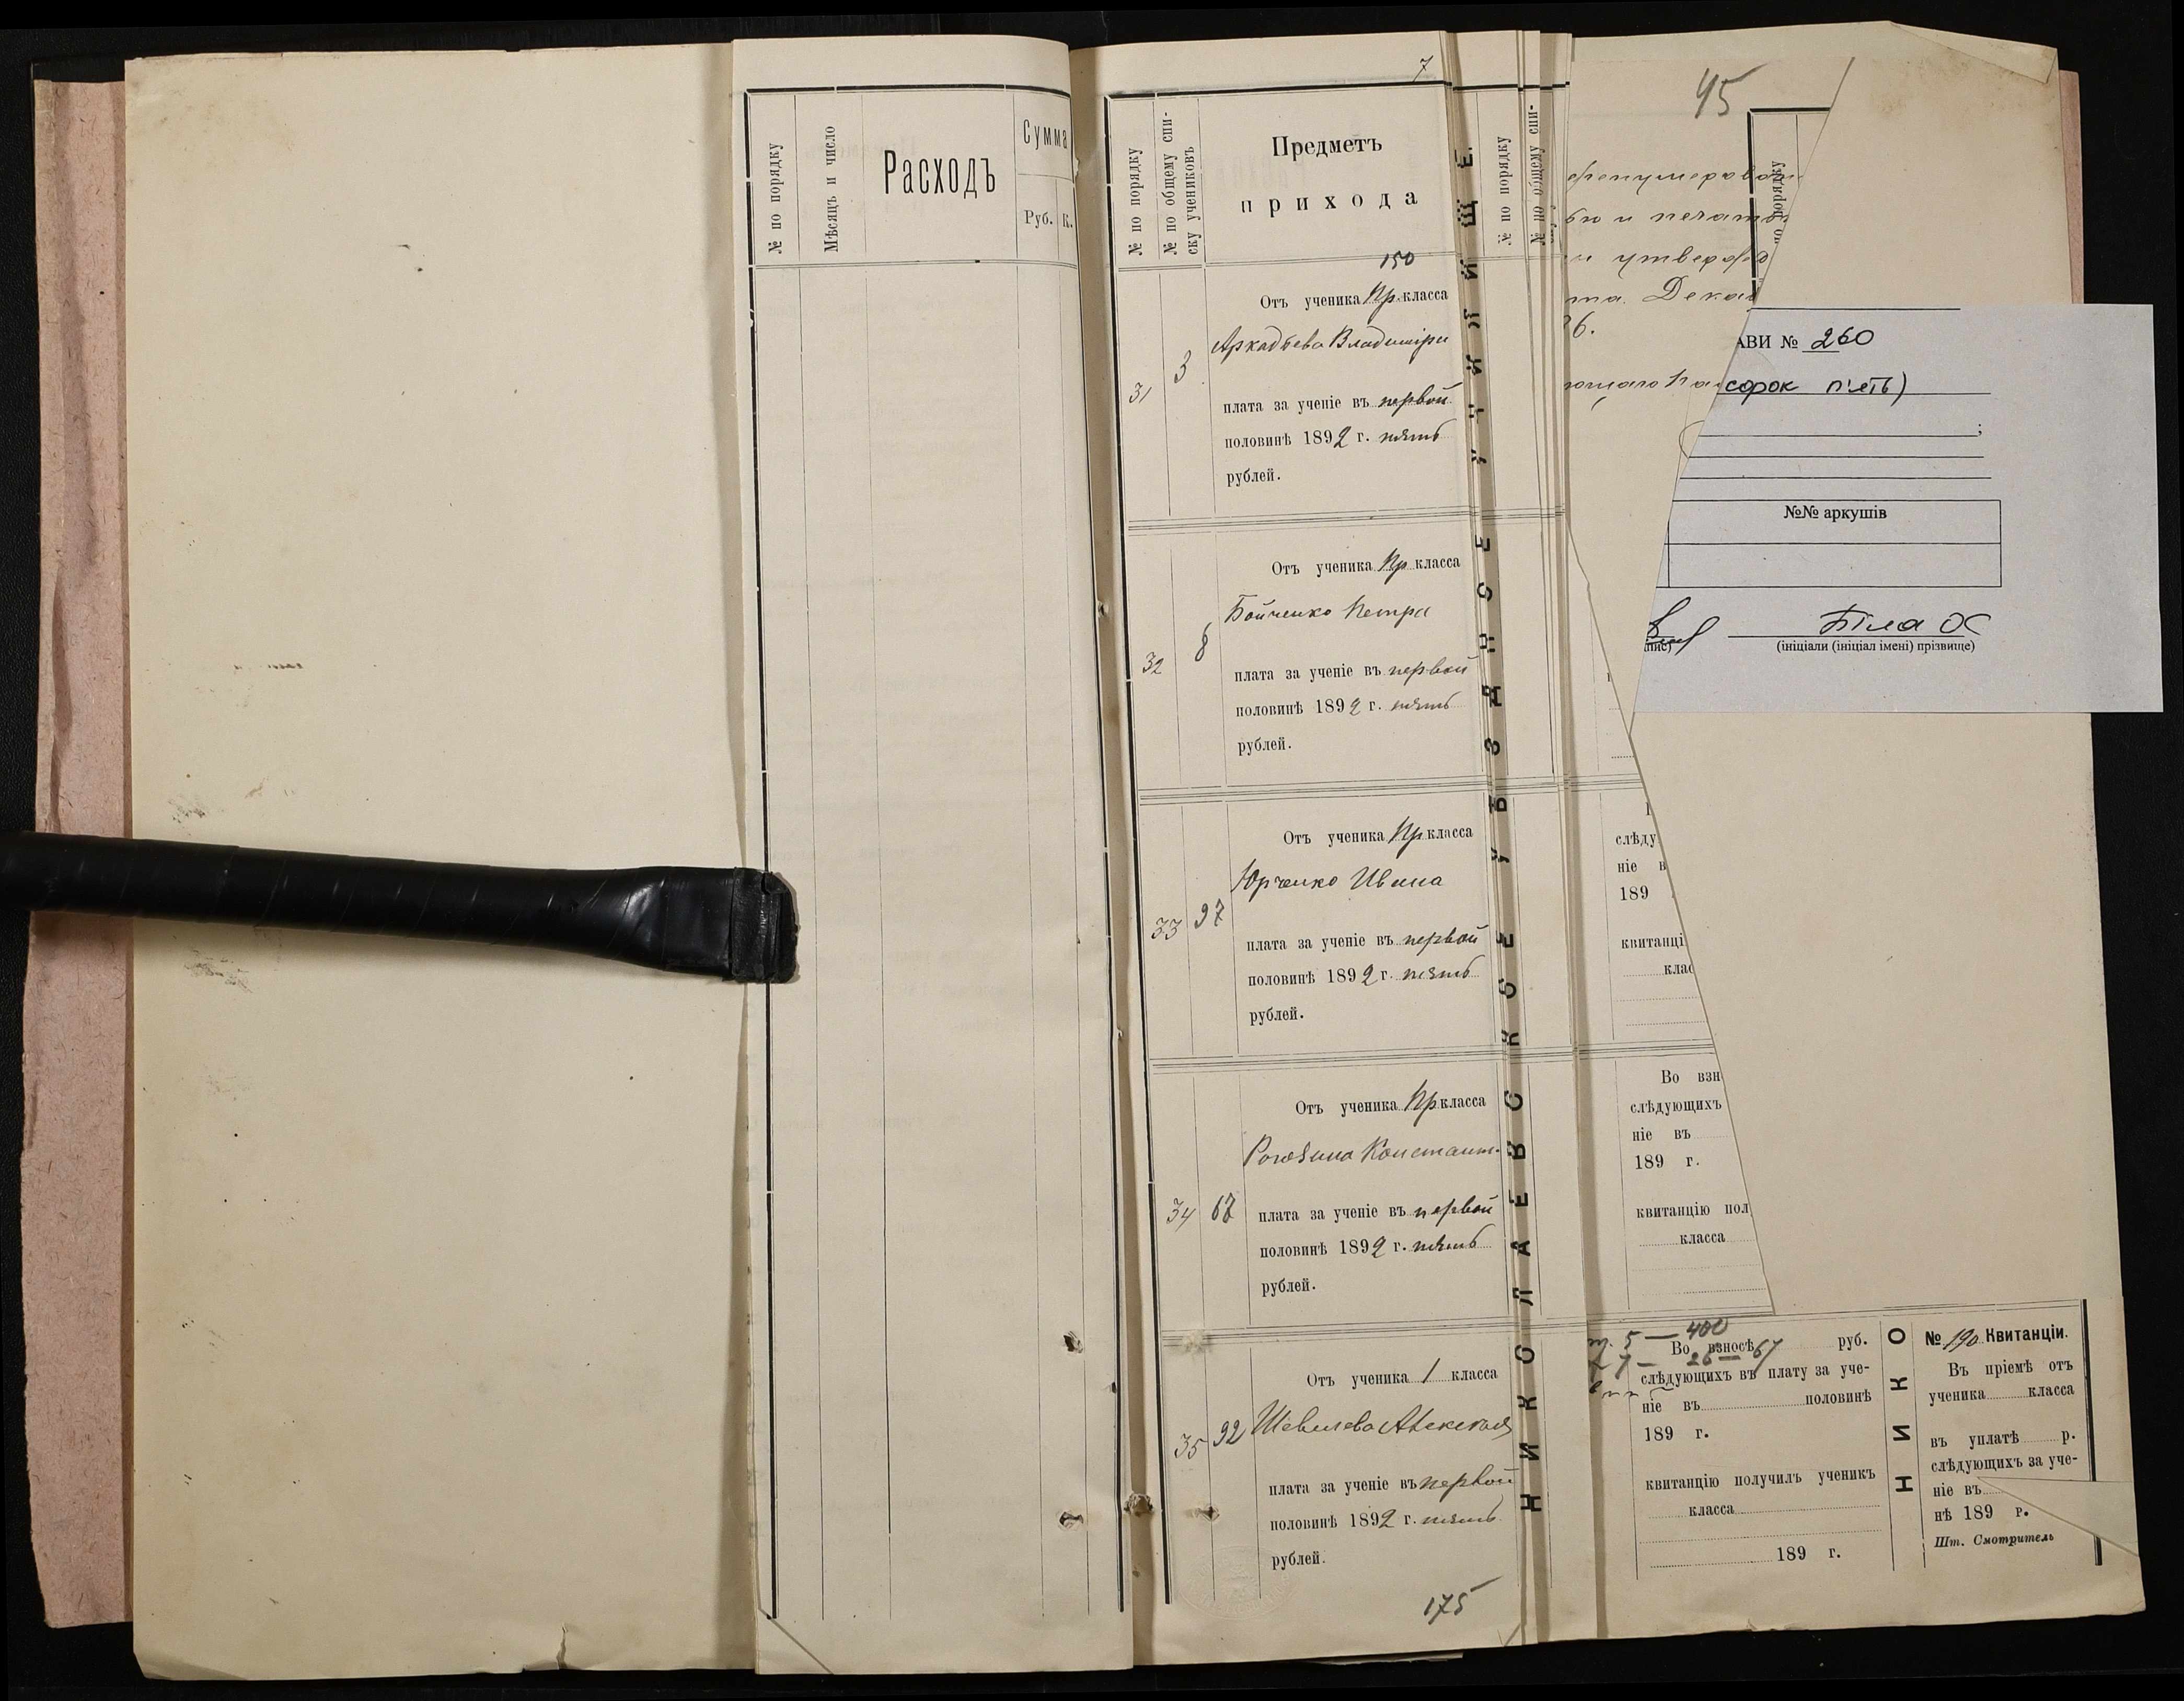 № по порядку
Мѣсяцъ и число
Расходъ
Сумма
Руб. К.
7
№ по порядку
№ по общему спи-
ску учениковъ
Предметъ
прихода
150
31
3
Отъ ученика Пр. класса
Аркадьева Владиміра
плата за ученіе въ первой
половинѣ 1892 г. пять
рублей.
32
8
Отъ ученика Пр класса
Бойченко Петра
плата за ученіе въ первой
половинѣ 1892 г. пять
рублей.
33
97
Отъ ученика Пр класса
Юрченко Ивана
плата за ученіе въ первой
половинѣ 1892 г. пять
рублей.
34
67
Отъ ученика Пр класса
Рогозина Констант.
плата за ученіе въ первой
половинѣ 1892 г. пять
рублей.
35
92
Отъ ученика 1 класса
плата за ученіе въ первой
половинѣ 1892 г. пять
рублей.
175
НИКОЛАЕВСКОЕ УѢЗДНОЕ УЧИЛИЩЕ.
№ по порядку
№ по общему спи-
45
по порядку
и утвержд
та. Декаб
6.
АВИ № 260
сорок п'ять)
;
№№ аркушів
Біла ОС
(ініціали (ініціал імені) прізвище)
слѣду
ніе в
189
квитанці
клас
Во взн
слѣдующихъ
ніе въ
189 г.
квитанцію пол
класса
т. 5 — 400
7 — 26 — 67
Во взносѣ руб.
слѣдующихъ въ плату за уче-
ніе въ половинѣ
189 г.
квитанцію получилъ ученикъ
класса
189 г.
НИКО
№ 190 Квитанціи.
Въ пріемѣ отъ
ученика класса
въ уплатѣ р.
слѣдующихъ за уче-
ніе въ
нѣ 189 г.
Шт. Смотритель